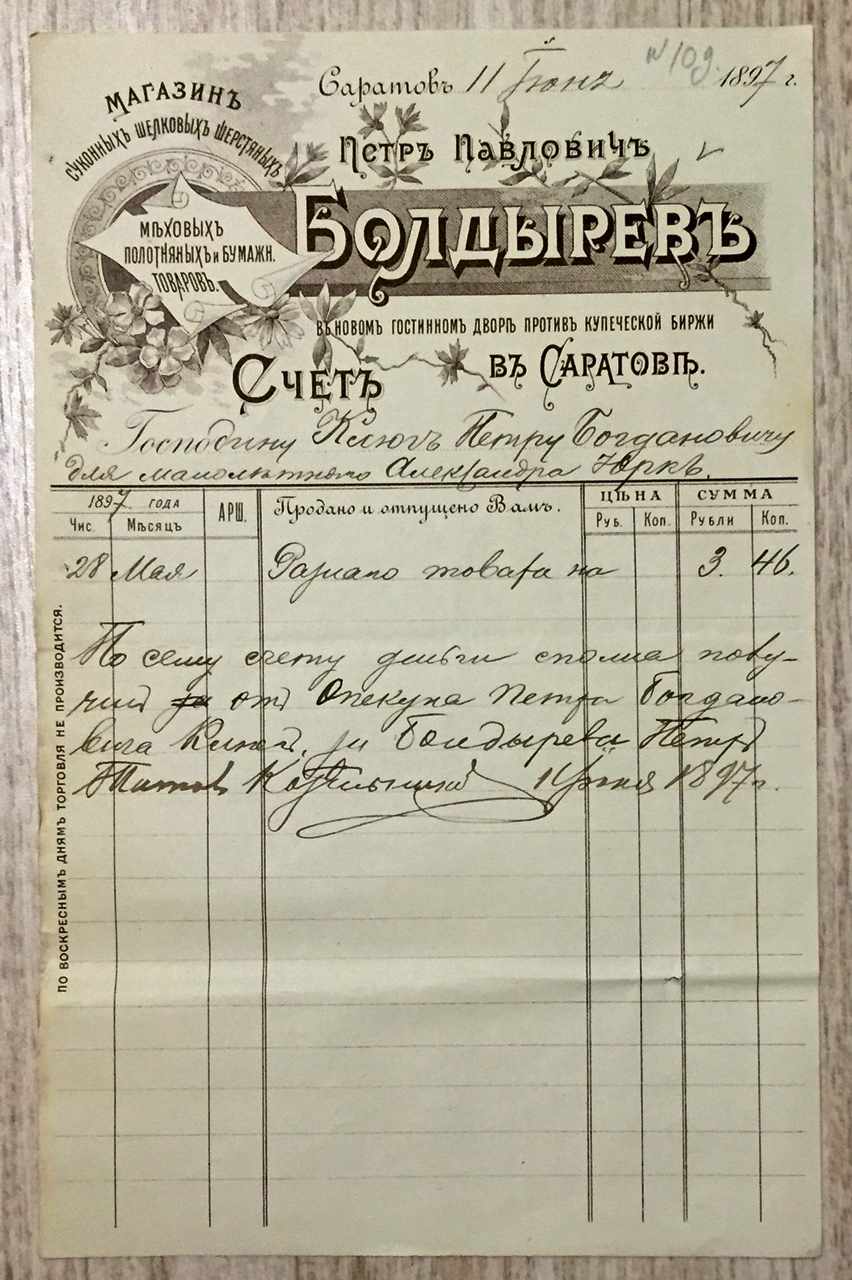 № 109.
Саратовъ 11 Іюня 1897 г.
МАГАЗИНЪ
СУКОННЫХЪ ШЕЛКОВЫХЪ ШЕРСТЯНЫХЪ
МѢХОВЫХЪ
ПОЛОТНЯНЫХЪ и БУМАЖН.
ТОВАРОВЪ.
ПЕТРЪ ПАВЛОВИЧЪ
БОЛДЫРЕВЪ
ВЪ НОВОМЪ ГОСТИННОМЪ ДВОРѢ ПРОТИВЪ КУПЕЧЕСКОЙ БИРЖИ
СЧЕТЪ ВЪ САРАТОВѢ.
Господину Петру Богдановичу
для малолѣтняго Александра Юркъ.
1897 ГОДА АРШ. Продано и отпущено Вамъ. ЦѢНА СУММА
Чис. Мѣсяцъ Руб. Коп. Рубли Коп.
28 Мая Разнаго товара на 3. 46.
По сему счету деньги сполна полу-
чилъ за отъ Опекуна Петра Богдано-
вича за Болдырева Петръ
Титовъ 11 Іюня 1897 г.
ПО ВОСКРЕСНЫМЪ ДНЯМЪ ТОРГОВЛЯ НЕ ПРОИЗВОДИТСЯ.